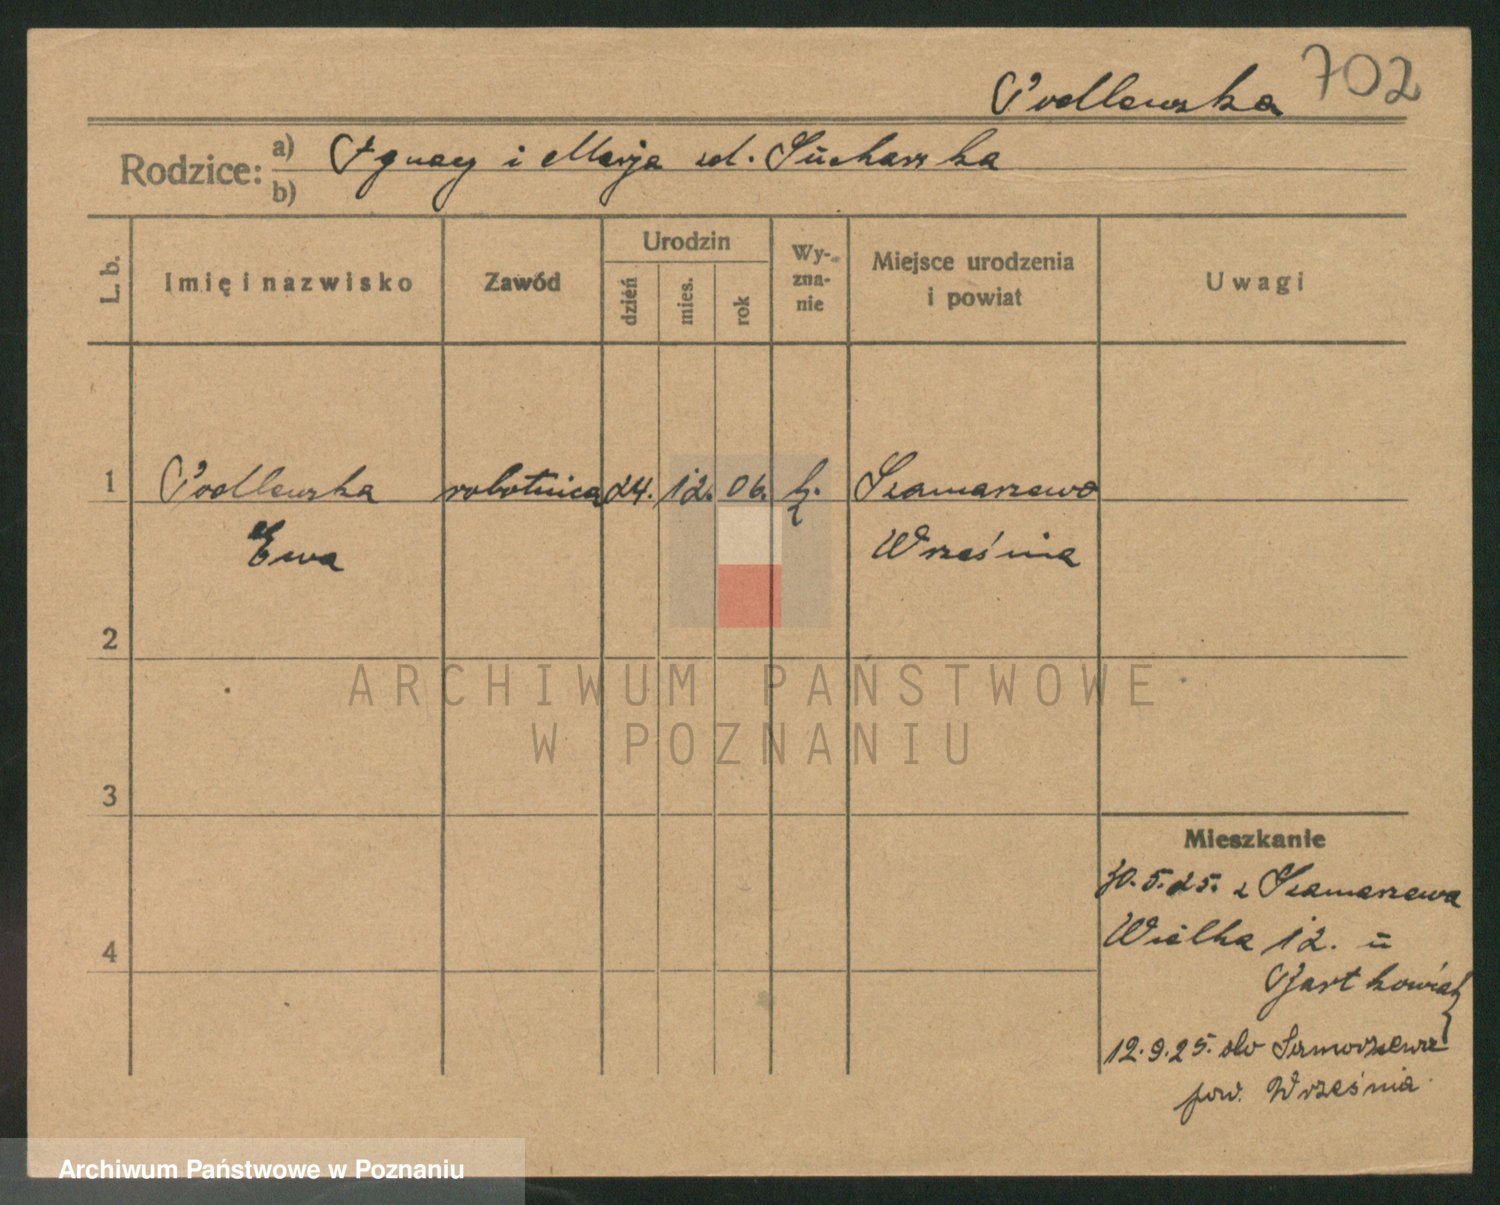 702
Podlewska
Rodzice: a) Ignacy i Marja zd. Sucharska
b)
L. b. Imię i nazwisko Zawód Urodzin dzień mies. rok Wy-zna-nie Miejsce urodzenia i powiat Uwagi
1 Podlewska robotnica 24. 12. 06. k. Szamarzewo
Ewa Września
2
3
Mieszkanie
30.5.25. z Szamarzewa
4 Wielka 12. u
Bartkowiak
12.9.25. do Szamarzewa
pow. Września.
ARCHIWUM PAŃSTWOWE
W POZNANIU
Archiwum Państwowe w Poznaniu